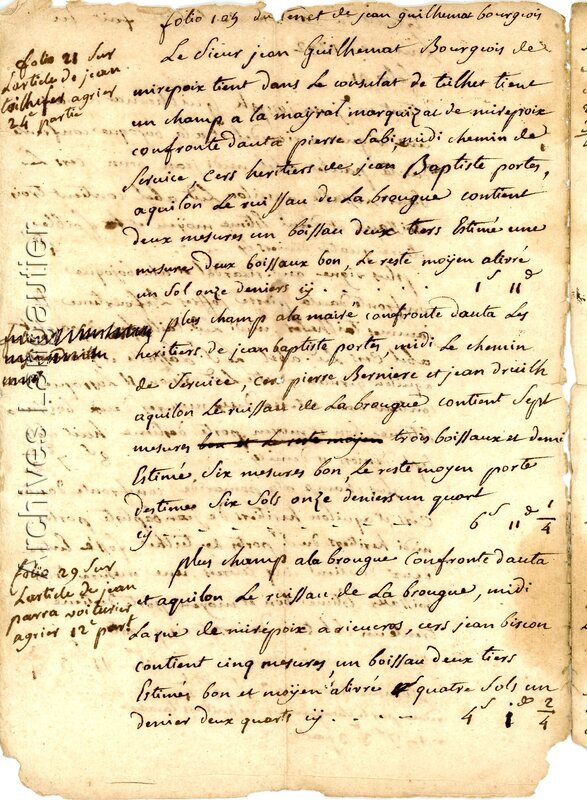 folio 109 du de jean guilhemat bourgeois
folio 21 Sur
Larticle de jean
agrier
24e partie
Le Sieur jean Guilhemat Bourgeois de
mirepoix tient dans le consulat de tilhet tient
un champ a la mayral marquizat de mirepoix
confronte dauta pierre Sabi, midi chemin de
Service, Cers heritiers de jean Baptiste portes,
aquilon Le ruissau de La brougue contient
deux mesures un boissau deux tiers Estimé une
mesure deux boissaux bon, Le reste moyen alivré
un Sol onze deniers cy . . . . 1 s 11 d
plus champ a la maire confronte dauta Les
heritiers de jean baptiste portes, midi Le chemin
de Service, Cers pierre Berniere et jean druilh
aquilon Le ruissau de La brougue contient Sept
mesures bon et Le reste moyen trois boissaux et demi
Estimée, Six mesures bon, Le reste moyen porte
destimes Six Sols onze deniers un quart
cy . . . . 6 s 11 d 1/4
folio 29 Sur
Larticle de jean
parra voiturier
agrier 12e part
plus champ a la brougue confronte dauta
et aquilon Le ruissau de La brougue, midi
La rue de mirepoix a rieucros, cers jean biscon
contient cinq mesures, un boissau deux tiers
Estimés bon et moyen alivré quatre Sols un
denier deux quarts cy . . . . 4 s 1 d 2/4
Archives Lassautier